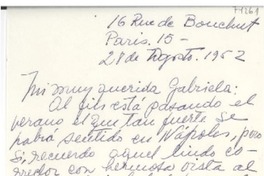 16 Rue de Bouchut
Paris. 15 -
28 de Agosto. 1952
Mi muy querida Gabriela:
Al fin está pasando el
verano el que tan fuerte se
habrá sentido en Nápoles, pero
si, recuerdo aquel lindo co-
rredor con hermosa vista al